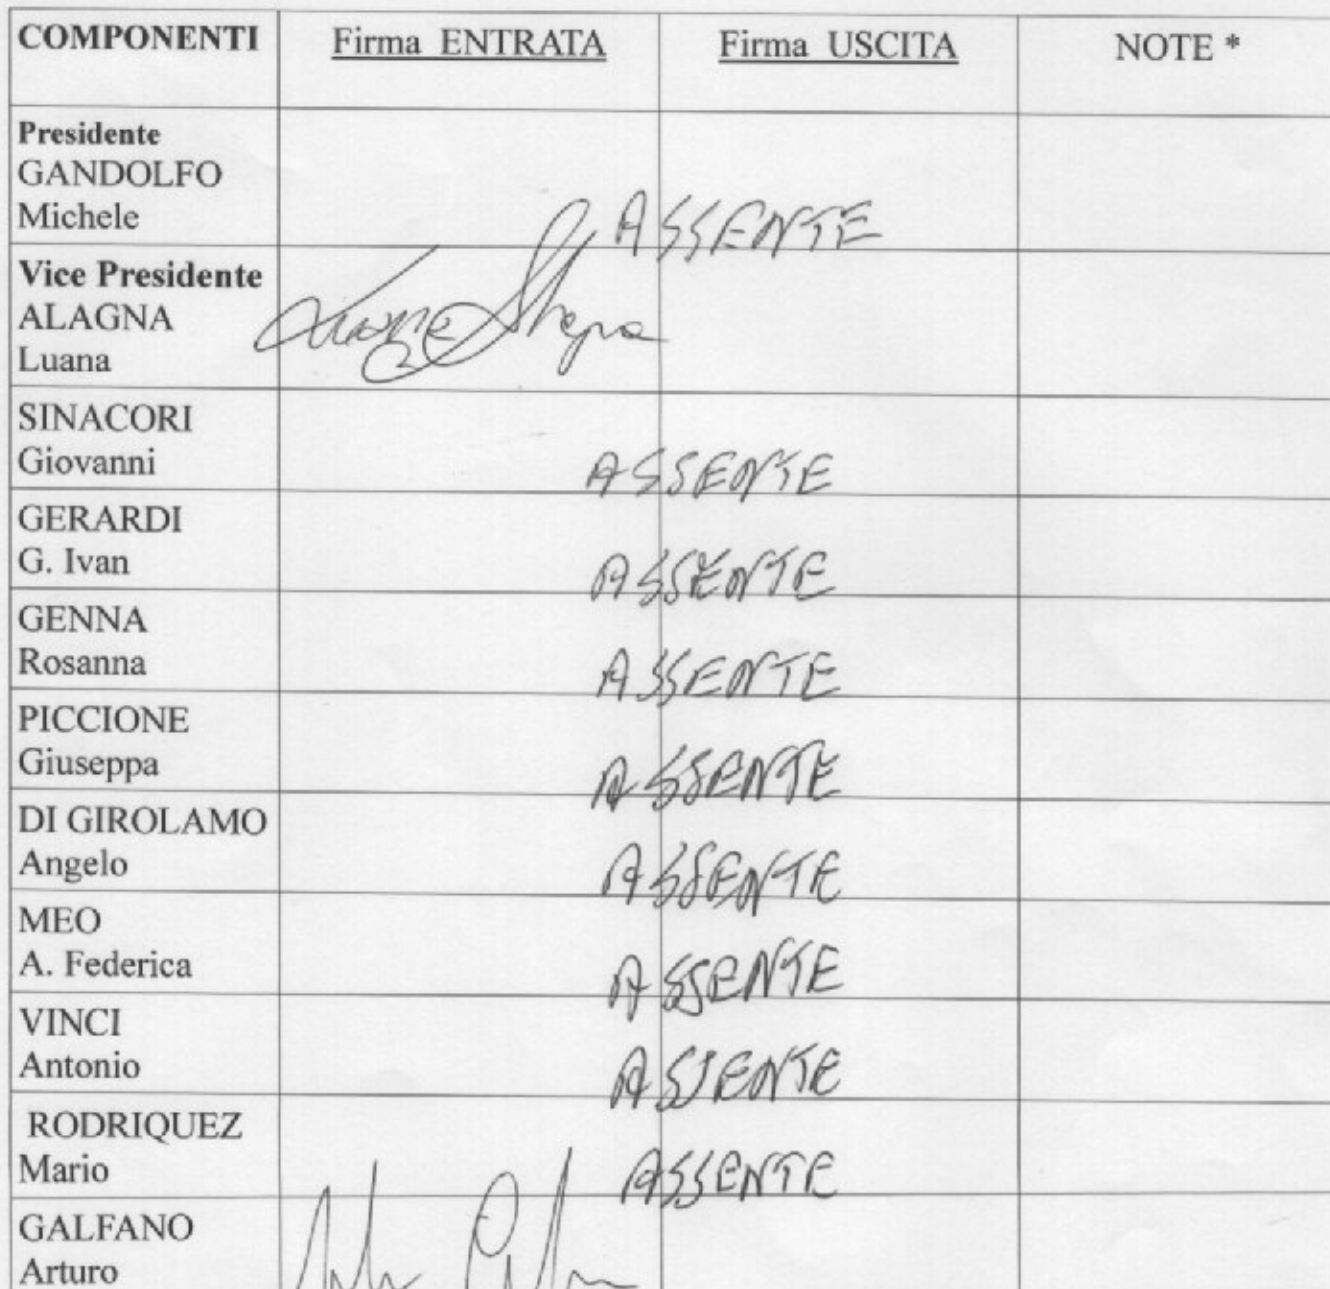 COMPONENTI Firma ENTRATA Firma USCITA NOTE *
Presidente
GANDOLFO
Michele
ASSENTE
Vice Presidente
ALAGNA
Luana
SINACORI
Giovanni
ASSENTE
GERARDI
G. Ivan
ASSENTE
GENNA
Rosanna
ASSENTE
PICCIONE
Giuseppa
ASSENTE
DI GIROLAMO
Angelo
ASSENTE
MEO
A. Federica
ASSENTE
VINCI
Antonio
ASSENTE
RODRIQUEZ
Mario
ASSENTE
GALFANO
Arturo